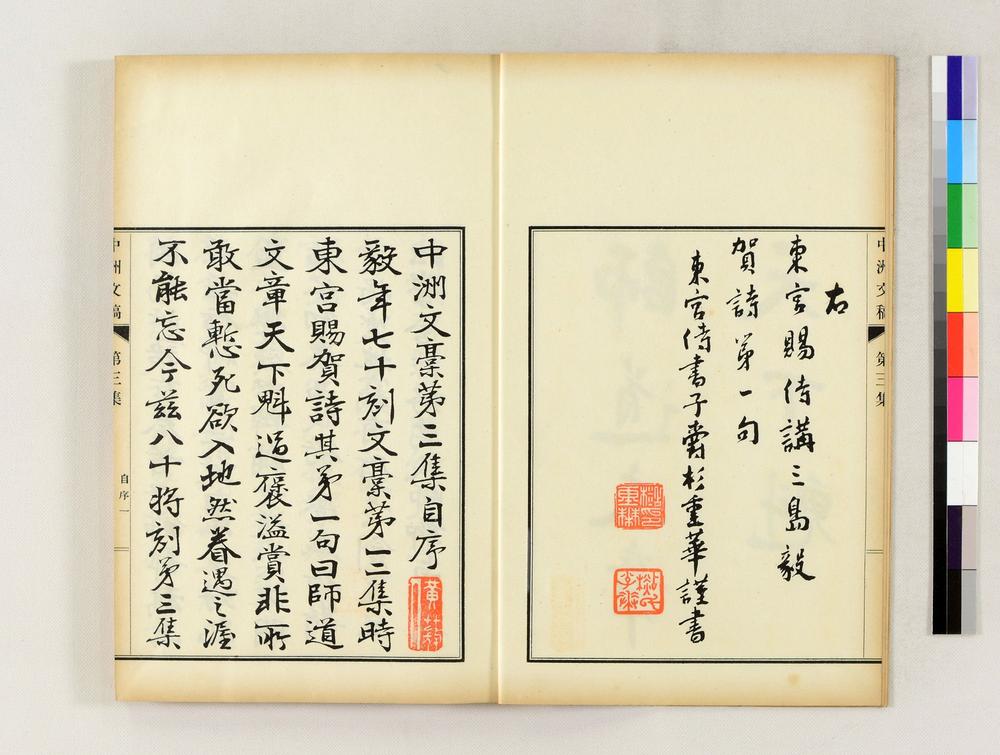 右
東宮賜侍講三島毅
賀詩第一句
東宮侍書子爵杉重華謹書
中洲文稿
第三集
中洲文稾第三集自序
毅年七十刻文稾第一二集時
東宮賜賀詩其第一句曰師道
文章天下魁過襃溢賞非所
敢當慙死欲入地然眷遇之渥
不能忘今玆八十將刻第三集
中洲文稿
第三集
自序一